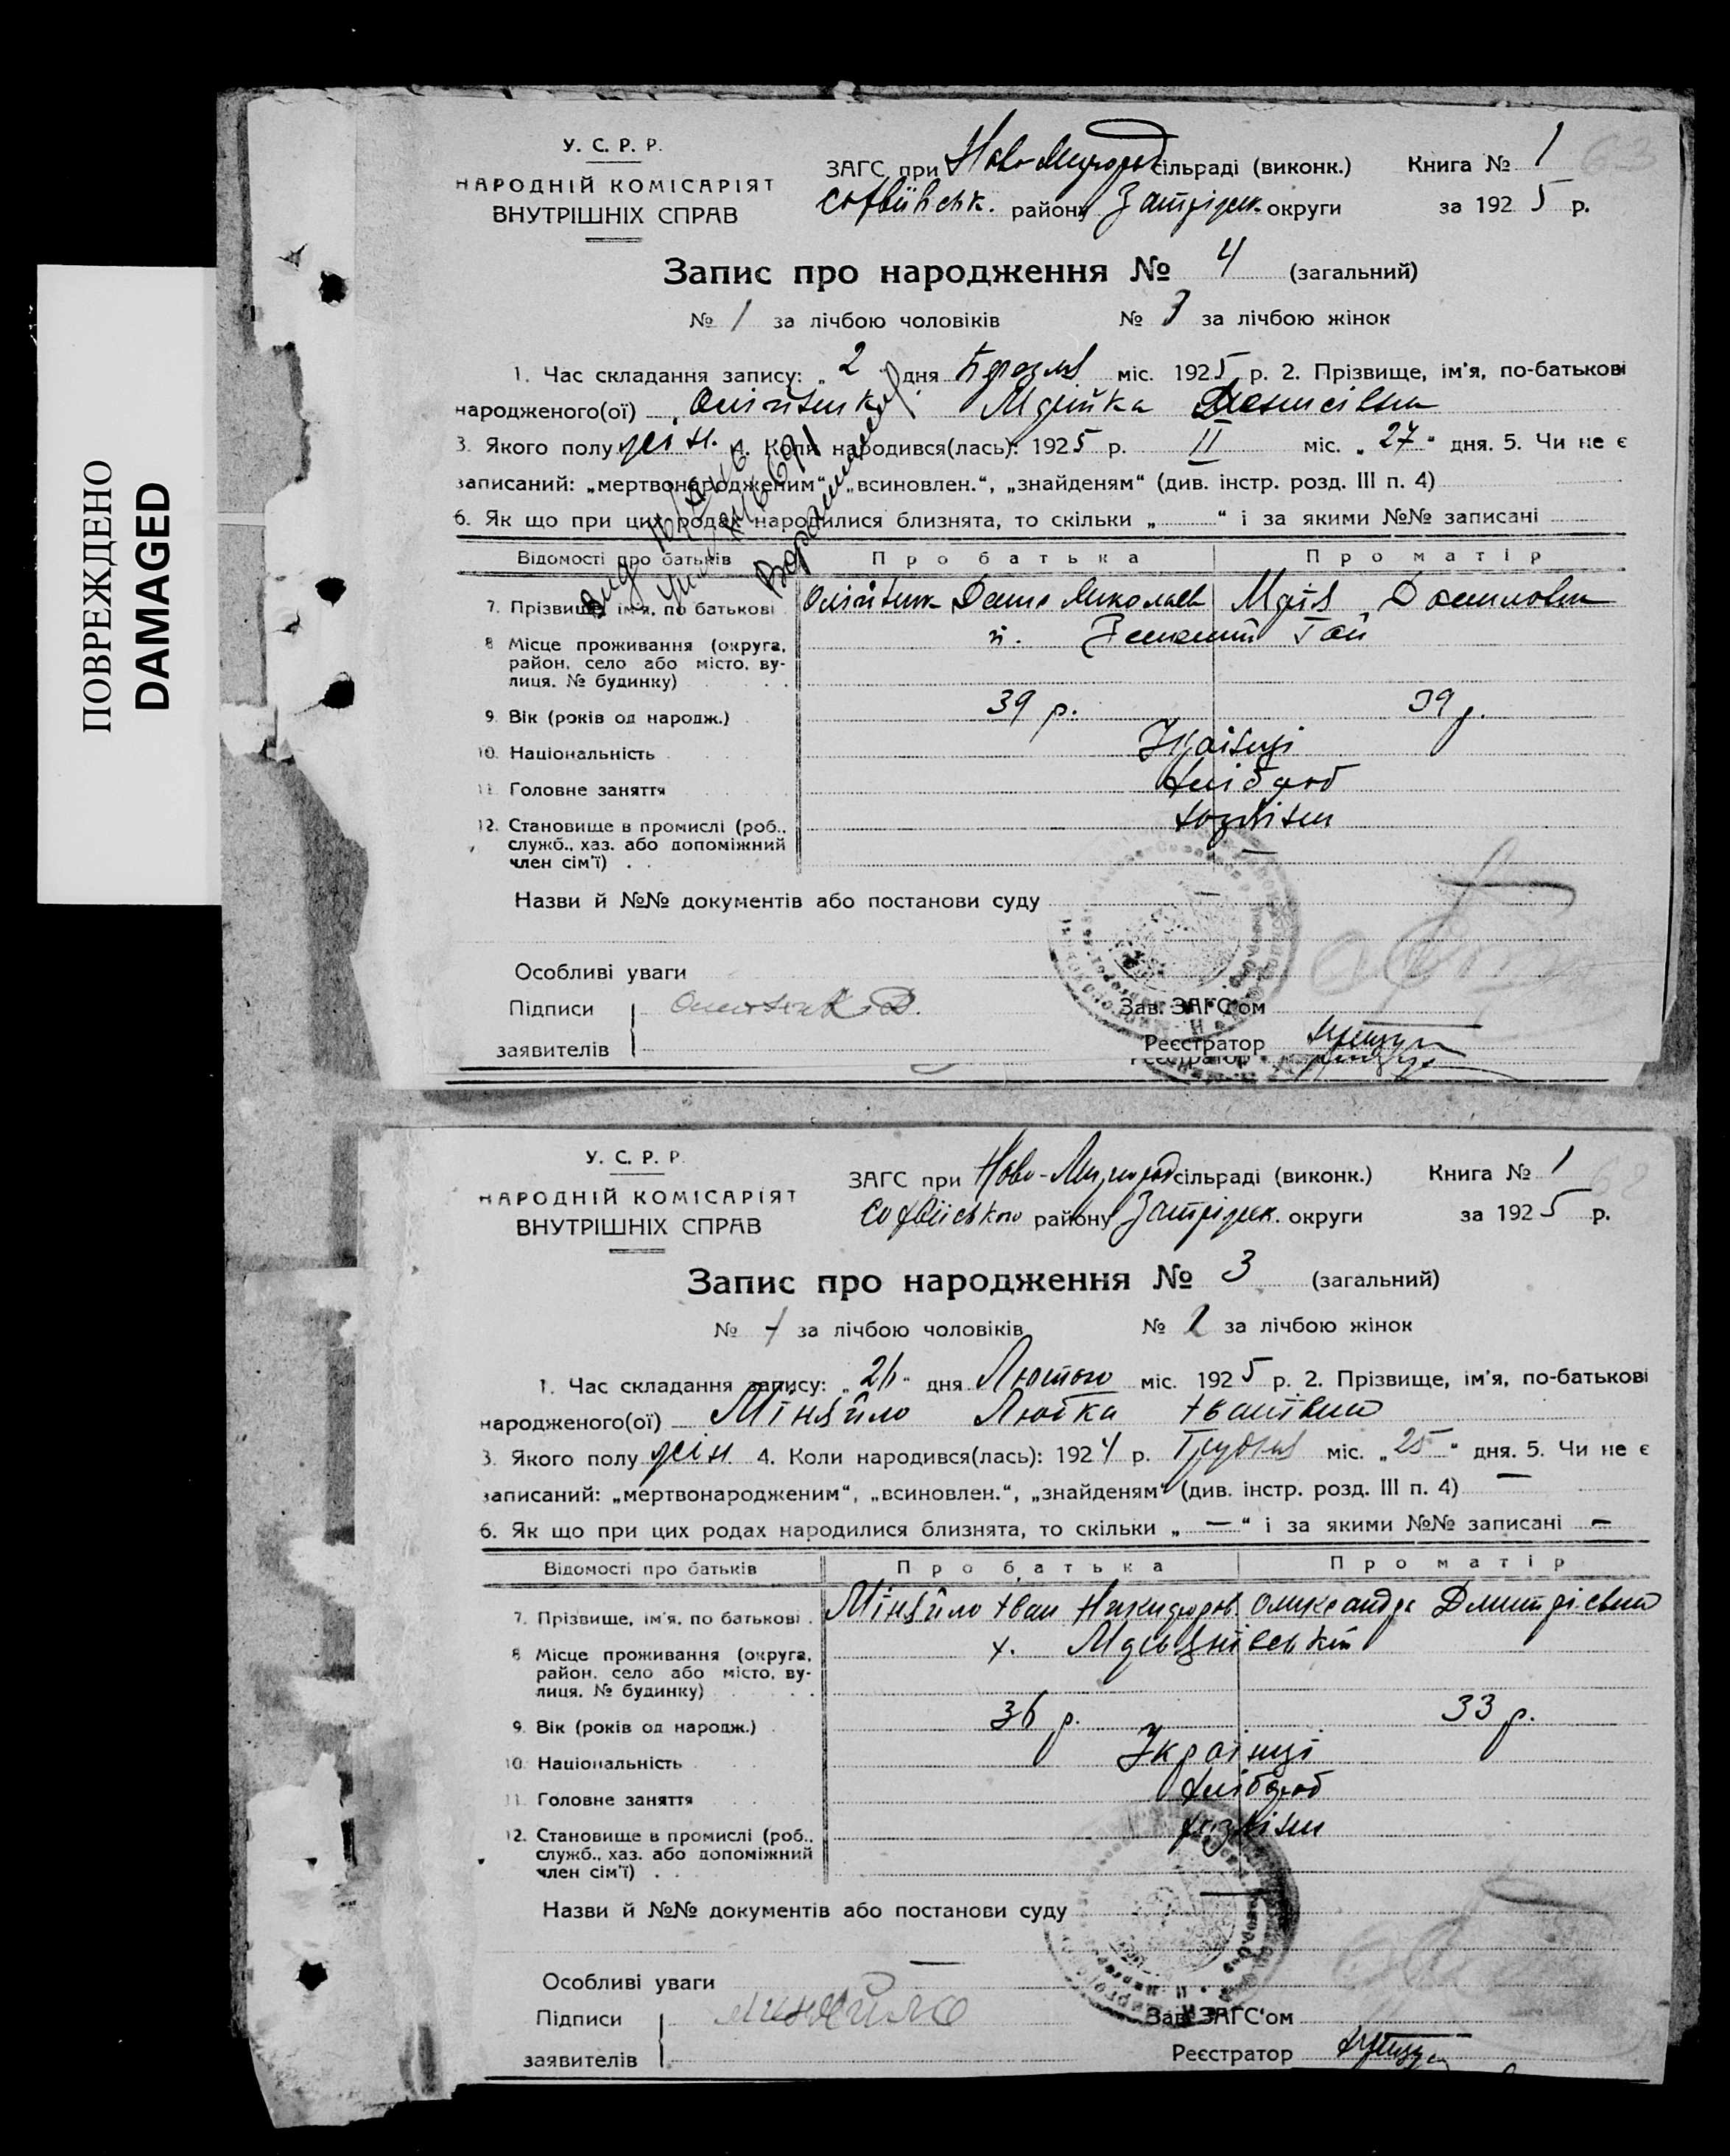 ПОВРЕЖДЕНО
DAMAGED
У. С. Р. Р.
НАРОДНІЙ КОМІСАРІЯТ
ВНУТРІШНІХ СПРАВ
ЗАГС при Ново-Миргород сільраді (виконк.) Книга № 1
63
Софіївськ. району Запоріжж. округи за 1925 р.
Запис про народження № 4 (загальний)
№ 1 за лічбою чоловіків № 3 за лічбою жінок
1. Час складання запису: „2" дня Березня міс. 1925 р. 2. Прізвище, ім'я, по-батькові
народженого(ої)
3. Якого полу жін. 4. Коли народився(лась): 1925 р. II міс. „27" дня. 5. Чи не є
записаний: „мертвонародженим", „всиновлен.", „знайденям" (див. інстр. розд. III п. 4)
6. Як що при цих родах народилися близнята, то скільки „ " і за якими №№ записані
Відомості про батьків Про батька Про матір
7. Прізвище, ім'я, по батькові
8 Місце проживання (округа,
район, село або місто, ву-
лиця, № будинку) Гай
9. Вік (років од народж.) 39 р. 39 р.
10. Національність Українці
11. Головне заняття хлібороб
12. Становище в промислі (роб.,
служб., хаз. або допоміжний
член сім'ї) . .
Назви й №№ документів або постанови суду —
Особливі уваги
Підписи
Зав. ЗАГС'ом
заявителів
Реєстратор
Реєстратор
У. С. Р. Р.
НАРОДНІЙ КОМІСАРІЯТ
ВНУТРІШНІХ СПРАВ
ЗАГС при Ново-Миргород сільраді (виконк.) Книга № 1
62
Софіївського району Запоріжж. округи за 1925 р.
Запис про народження № 3 (загальний)
№ 1 за лічбою чоловіків № 2 за лічбою жінок
1. Час складання запису: „26" дня Лютого міс. 1925 р. 2. Прізвище, ім'я, по-батькові
народженого(ої) Міняйло Любка Іванівна
3. Якого полу жін. 4. Коли народився(лась): 1924 р. Грудня міс. „25" дня. 5. Чи не є
записаний: „мертвонародженим", „всиновлен.", „знайденям" (див. інстр. розд. III п. 4) —
6. Як що при цих родах народилися близнята, то скільки „ — " і за якими №№ записані —
Відомості про батьків Про батька Про матір
7. Прізвище, ім'я, по батькові . Міняйло Іван Никифоров. Олександра Дмитрієвна
8 Місце проживання (округа,
район, село або місто, ву-
лиця, № будинку) х.
9. Вік (років од народж.) . 36 р. 33 р.
10. Національність Українці
11. Головне заняття хлібороб
12. Становище в промислі (роб.,
служб., хаз. або допоміжний
член сім'ї) . .
Назви й №№ документів або постанови суду —
Особливі уваги —
Підписи Миняйло
Зав. ЗАГС'ом
заявителів
Реєстратор